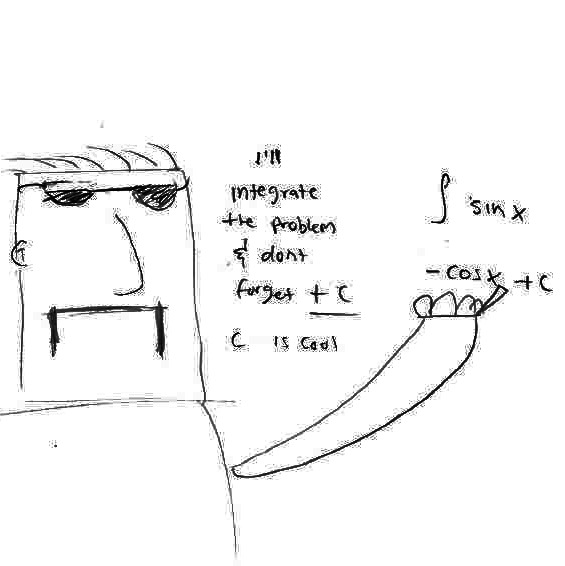 I'll
integrate
the problem
& dont
forget + C
C is cool
∫ sin x
- cos x + C